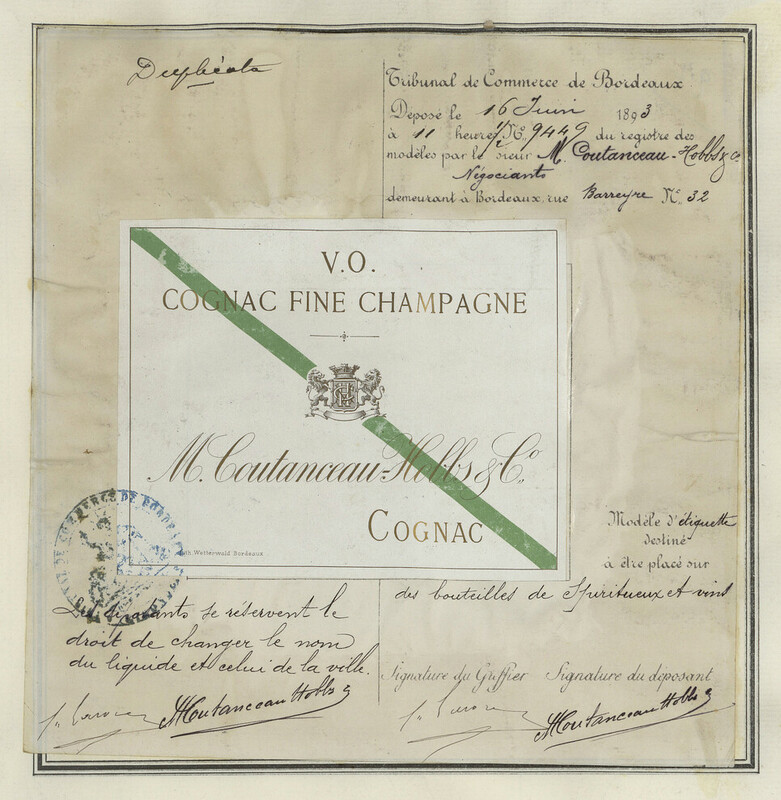 Duplicata
Tribunal de Commerce de Bordeaux
Déposé le 16 Juin 1893
à 11 heures 1/2 N° 9449 du registre des
modèles par le sieur M. Coutanceau-Hobbs & Co
Négociants
demeurant à Bordeaux, rue Barreyre N° 32
V.O.
COGNAC FINE CHAMPAGNE
M. Coutanceau-Hobbs & Co.
COGNAC
Lith. Wetterwald Bordeaux
DE COMMERCE DE BORDEAUX
Modèle d'étiquette
destiné
à être placé sur
des bouteilles de Spiritueux et vins
se réservent le
droit de changer le nom
du liquide et celui de la ville.
Signature du Greffier Signature du déposant
MCoutanceau Hobbs
MCoutanceau Hobbs